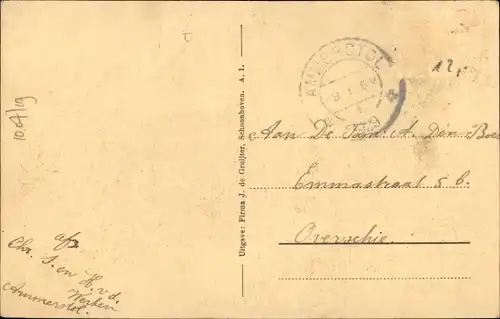 10.04/19
Uitgave: Firma J. de Gruijter, Schoonhoven. A. 1.
AMMERSTOL
12,
Aan De Fam A. Den Boe
Emmastraat 5 b.
Overschie.
afz
Chr. J. en H. v. d.
Werken
Ammerstol.